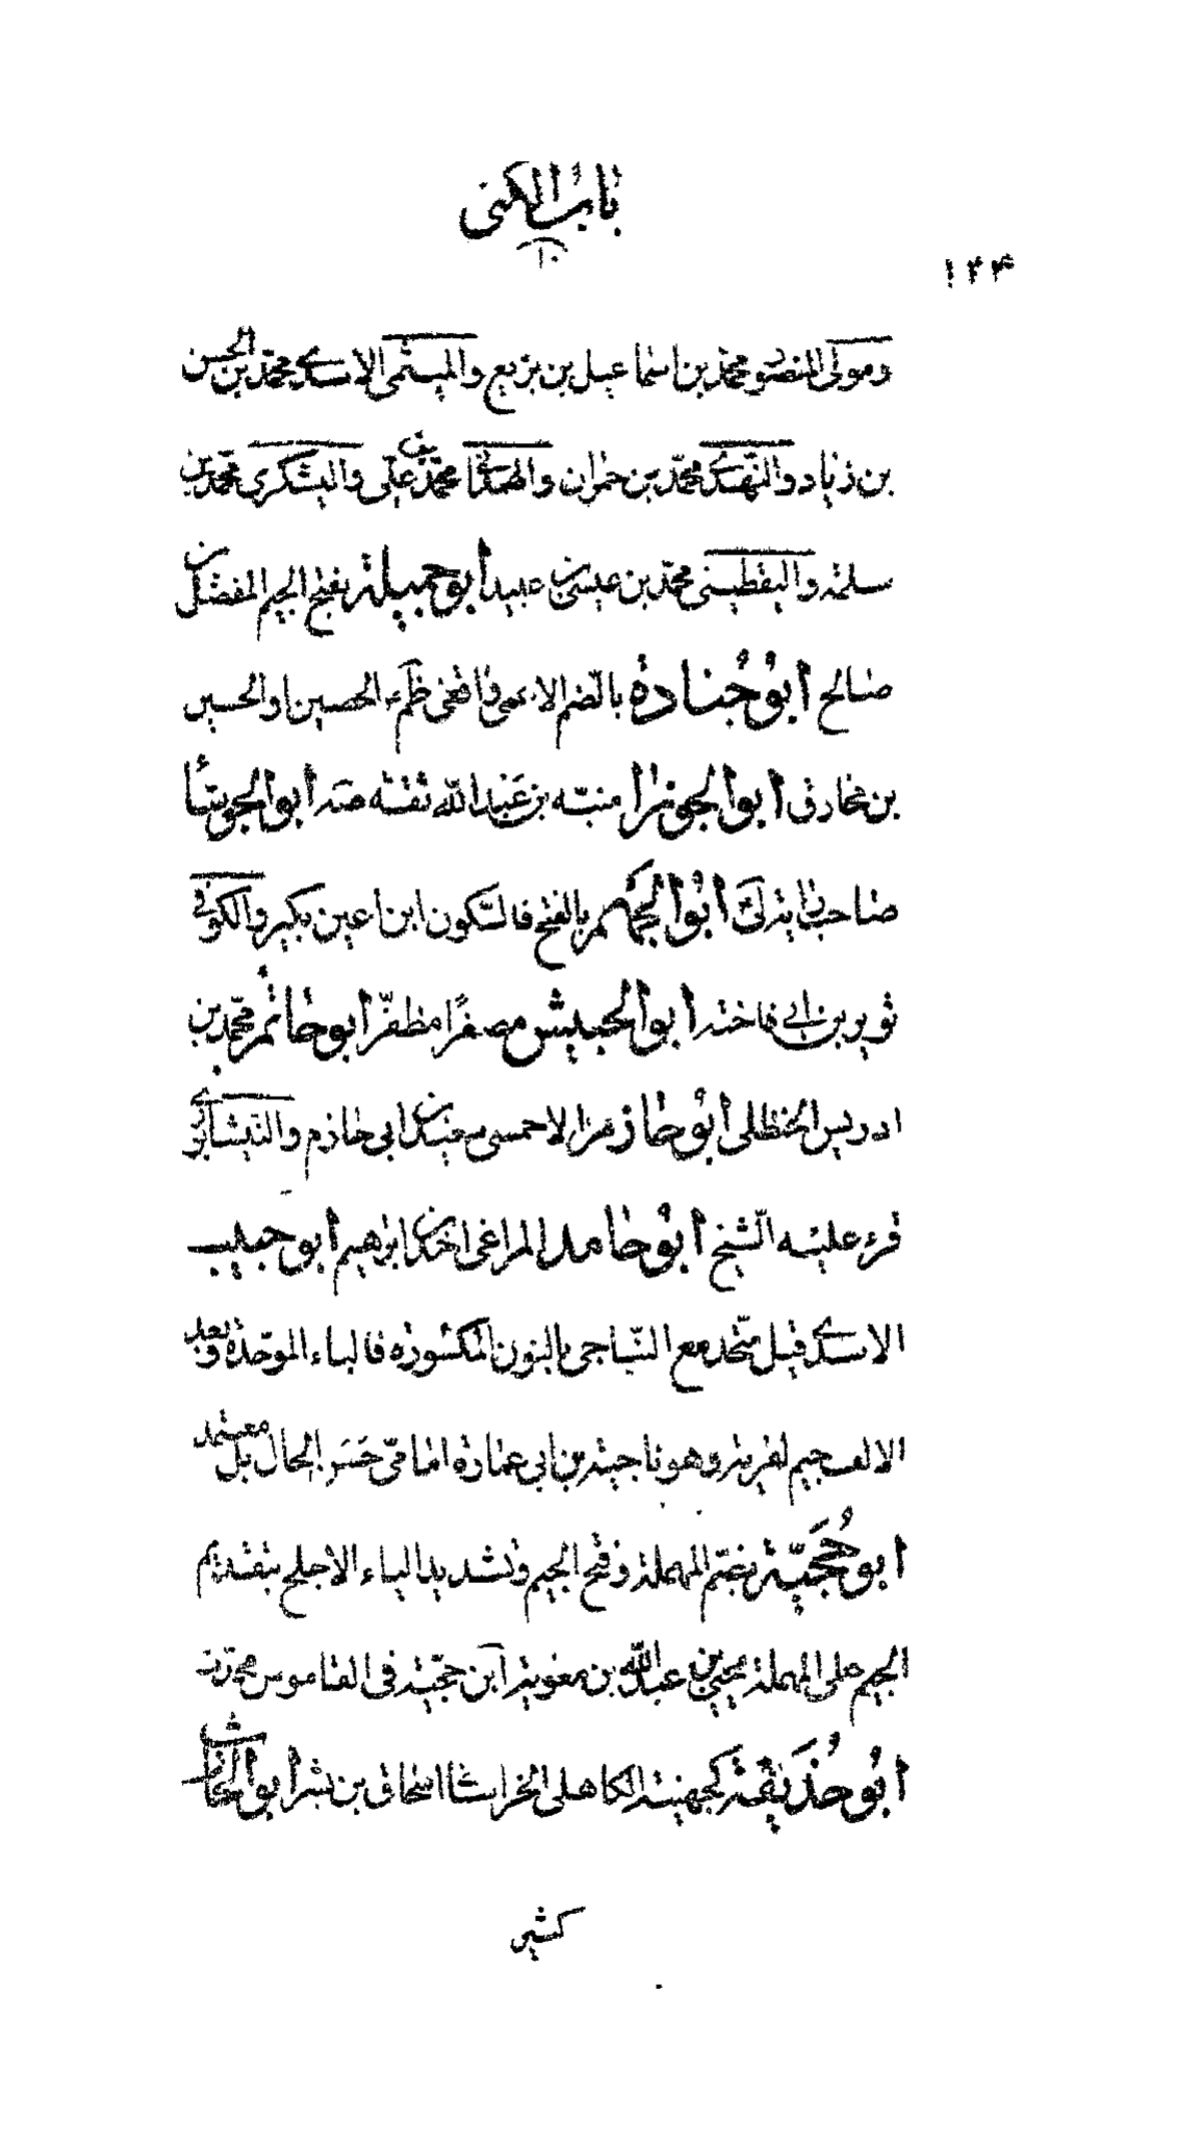 باب الكنى
١٠
١٢٤
ومولى المنصور محمد بن اسماعيل بن بزيع والميثمى الاسدى محمد بن الحسن
بن زياد والنهدى محمد بن حمران والهمدانى محمد بن على واليشكرى محمد بن
سلمة واليقطينى محمد بن عيسى بن عبيد ابو جميلة بفتح الجيم المفضل بن
صالح ابو جنادة بالضم الاعمى الحصين او الحسين
بن مخارق ابو الجوزا منبّه بن عبد الله ثقة ابو الجوشا
صاحب راية ابو الجهم بالفتح فالسّكون ابن اعين بكير والكوفى
ثوير بن ابى فاخته ابو الجيش مصغرًا مظفّر ابو حاتم محمد بن
ادريس الحنظلى ابو حازم الاحمسى ابى حازم والنيشابورى
قرء عليه الشّيخ ابو حامد المراغى احمد بن ابرهيم ابو حبيب
الاسدى قيل متّحد مع النّباجى بالنون المكسورة فالباء الموحّدة وبعد
الالف جيم لقرية وهو ناجية بن ابى عمارة امامىّ حَسَن الحال بل معتمد
ابو حُجَيّة بضمّ المهملة وفتح الجيم وتشديد الياء الاجلح بتقديم
الجيم على المهملة يحيى بن عبد الله بن معوية ابن حجّية فى القاموس
ابو حُذَيْفَة كجهينة الكاهلى الخراسانى اسحاق بن بشر ابو
كثير